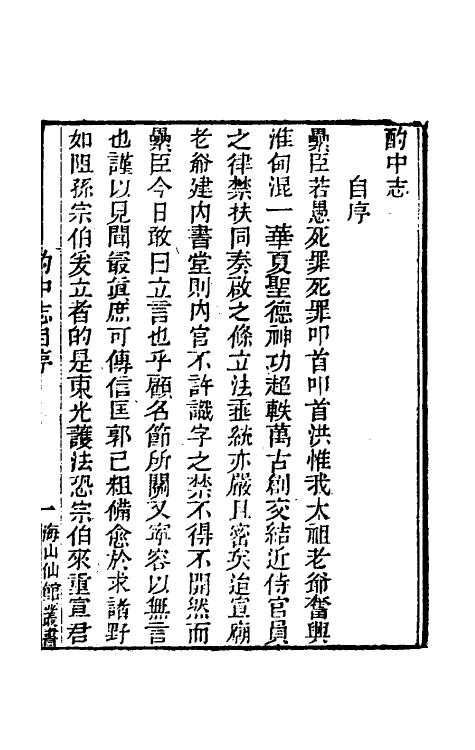 酌中志
自序
纍臣若愚死罪死罪叩首叩首洪惟我太祖老爺奮興
淮甸混一華夏聖德神功超軼萬古創交結近侍官員
之律禁扶同奏啟之條立法垂統亦嚴且密矣迨宣廟
老爺建內書堂則內官不許識字之禁不得不開然而
纍臣今日敢曰立言也乎顧名節所關又寧容以無言
也謹以見聞最真庶可傳信匡郭已粗備愈於求諸野
如阻孫宗伯爰立者的是東光護法恐宗伯來重宣君
酌中志自序
一
海山仙館叢書